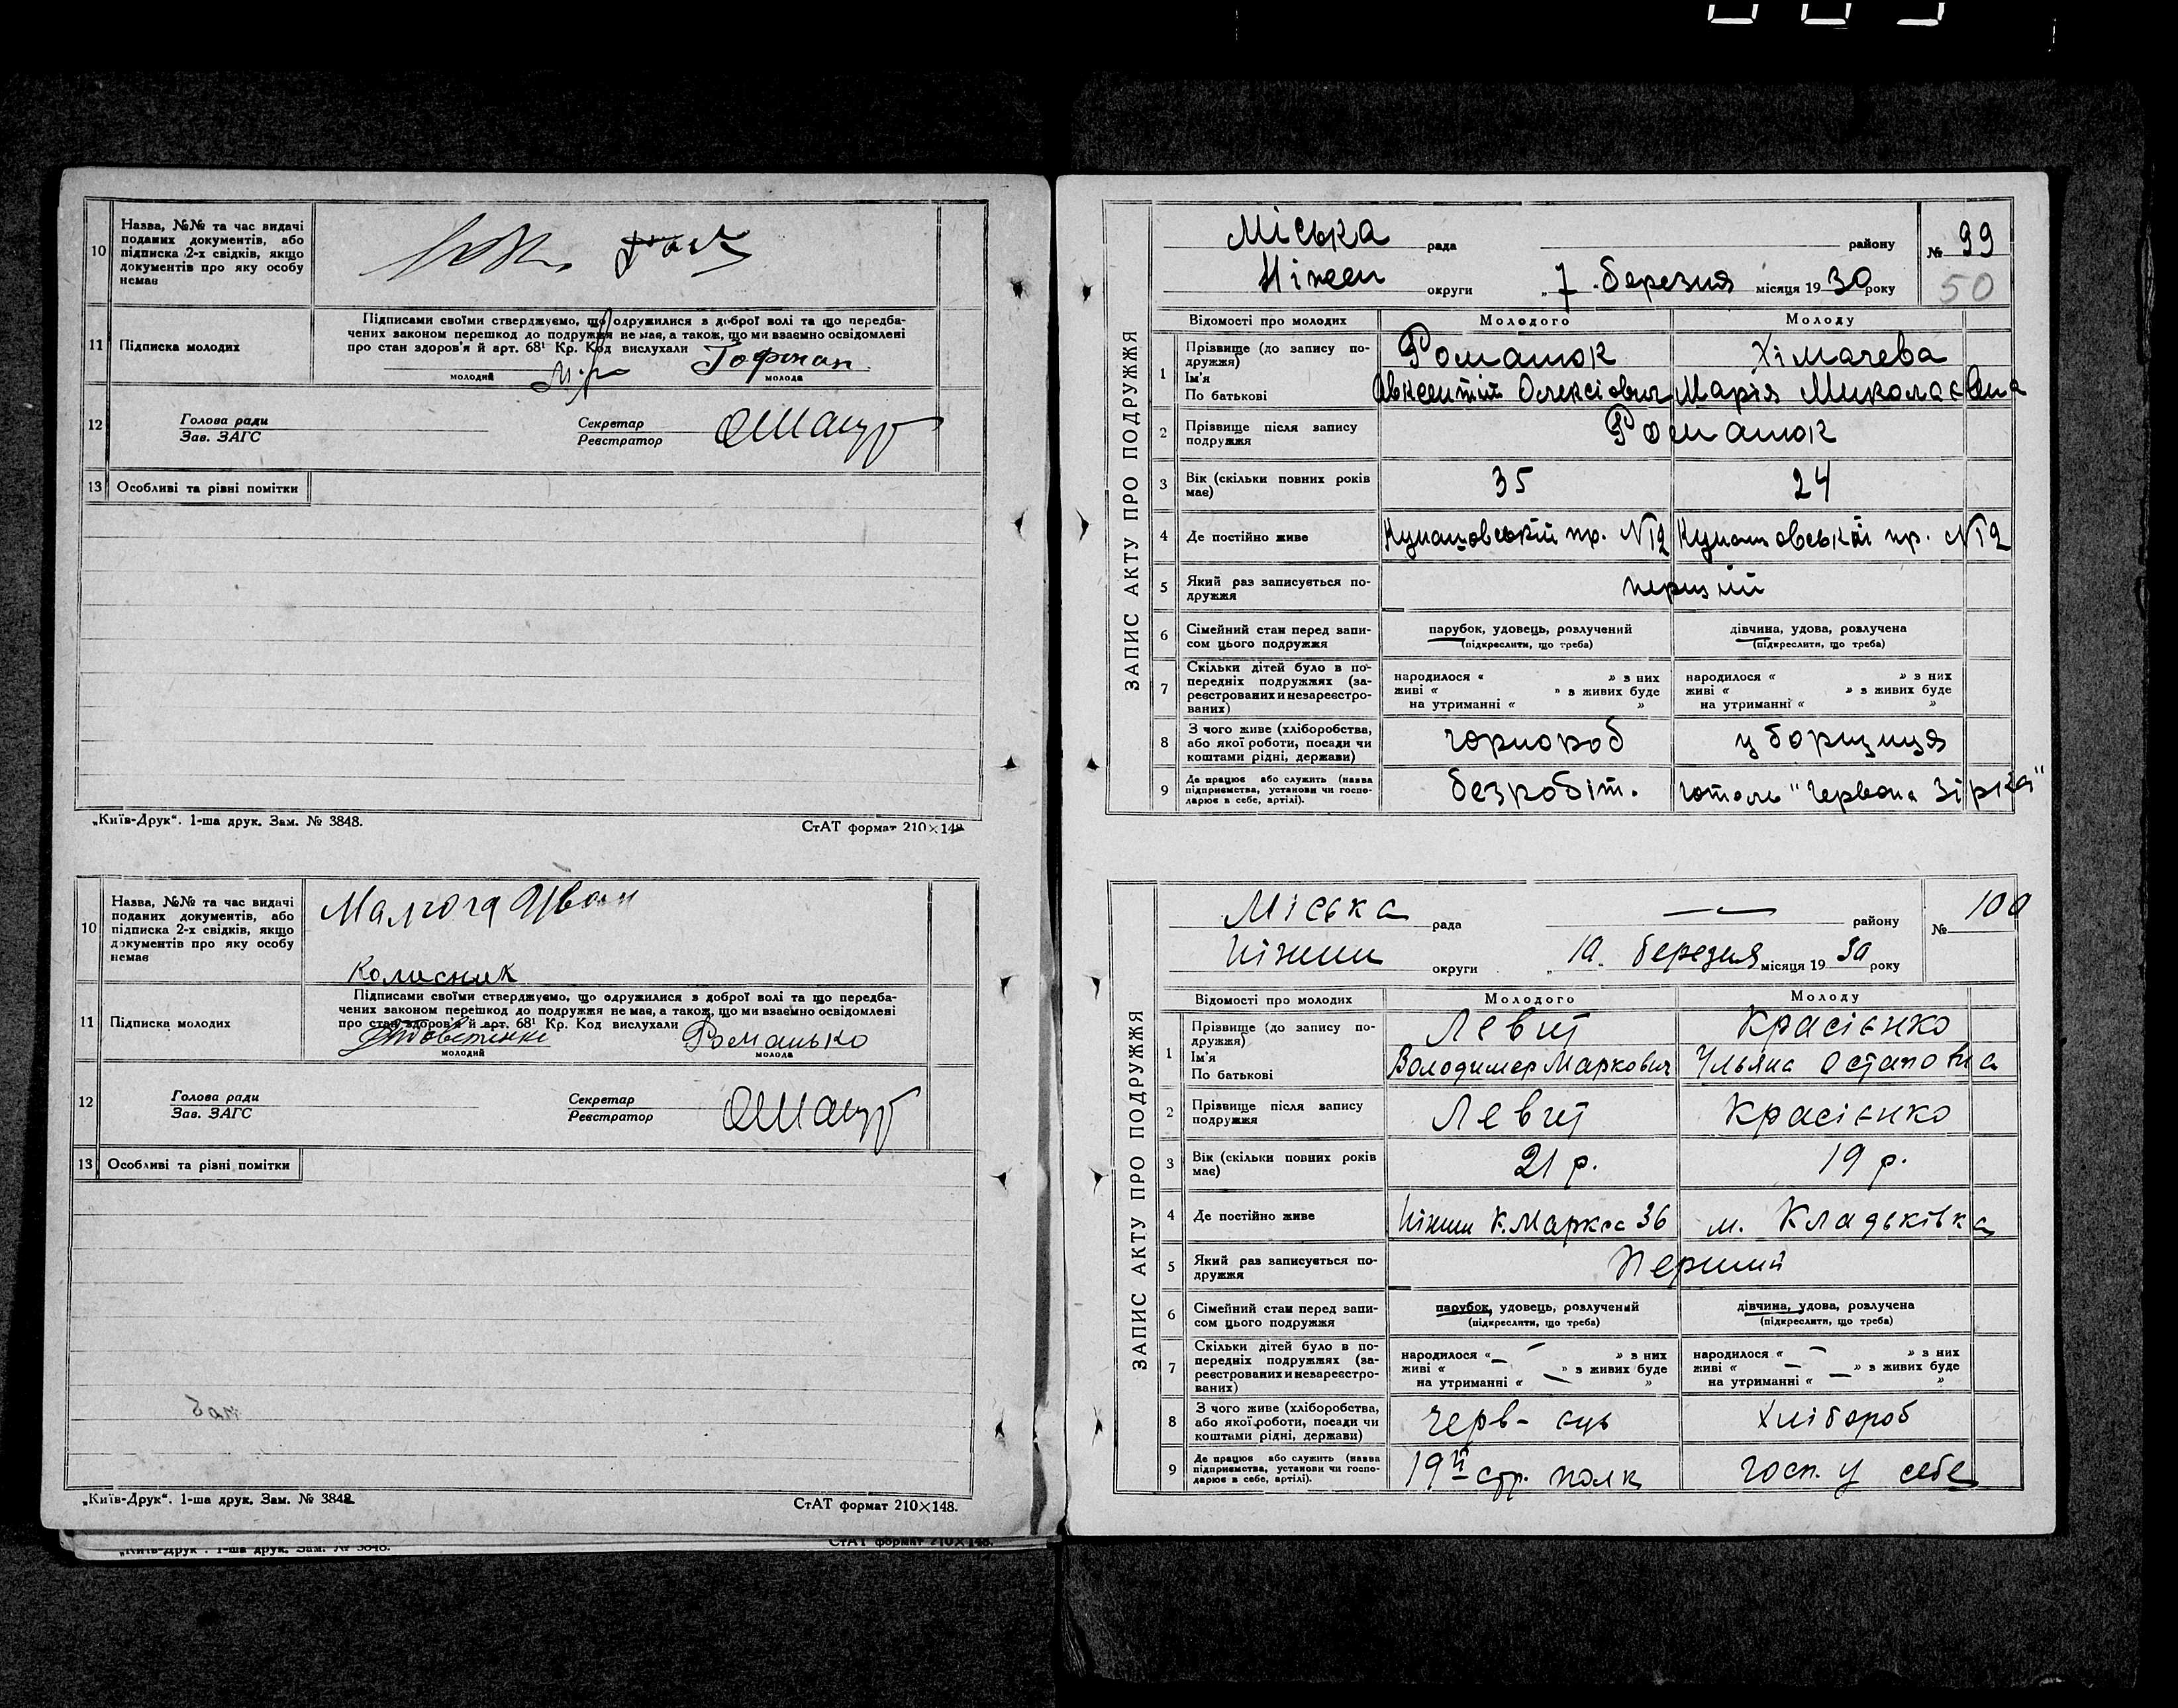 10
Назва, №№ та час видачі
поданих документів, або
підписка 2-х свідків, якщо
документів про яку особу
немає
11
Підписка молодих
Підписами своїми стверджуємо, що одружилися з доброї волі та що передба-
чених законом перешкод до подружжя не має, а також, що ми взаємно освідомлені
про стан здоров'я й арт. 68¹ Кр. Код вислухали
Гофман
молодий
молода
12
Голова ради
Зав. ЗАГС
Секретар
Реєстратор
13
Особливі та різні помітки
„Київ-Друк“. 1-ша друк. Зам. № 3848.
СтАТ формат 210×148
10
Назва, №№ та час видачі
поданих документів, або
підписка 2-х свідків, якщо
документів про яку особу
немає
Колисник
11
Підписка молодих
Підписами своїми стверджуємо, що одружилися з доброї волі та що передба-
чених законом перешкод до подружжя не має, а також, що ми взаємно освідомлені
про стан здоров'я й арт. 68¹ Кр. Код вислухали
Романько
молодий
молода
12
Голова ради
Зав. ЗАГС
Секретар
Реєстратор
13
Особливі та різні помітки
„Київ-Друк“. 1-ша друк. Зам. № 3848
СтАТ формат 210×148.
ЗАПИС АКТУ ПРО ПОДРУЖЖЯ
Міська рада району № 99
Ніжен округи „ 7 . березня місяця 19 30 року 50
Відомості про молодих Молодого Молоду
1
Прізвище (до запису по-
дружжя)
Ім'я
По батькові
Романюк Хімачева
Авксентій Олексіович Марія Миколаєвна
2
Прізвище після запису
подружжя
Романюк
3
Вік (скільки повних років
має)
35 24
4
Де постійно живе
Кунашовський пр. №12 Кунашовський пр. №12
5
Який раз записується по-
дружжя
перший
6
Сімейний стан перед запи-
сом цього подружжя
парубок, удовець, розлучений дівчина, удова, розлучена
(підкреслити, що треба) (підкреслити, що треба)
7
Скільки дітей було в по-
передніх подружжях (за-
реєстрованих и незареєстро-
ваних)
народилося « » з них народилося « » з них
живі « » з живих буде живі « » з живих буде
на утриманні « » на утриманні « »
8
З чого живе (хліборобства,
або якої роботи, посади чи
коштами рідні, держави)
чорнороб уборщиця
9
Де працює або служить (назва
підприємства, установи чи госпо-
дарює в себе, артілі).
безробіт. готель "Червона Зірка"
ЗАПИС АКТУ ПРО ПОДРУЖЖЯ
Міська рада — району № 100
Ніжин округи „ 10 „ березня місяця 19 30 року
Відомості про молодих Молодого Молоду
1
Прізвище (до запису по-
дружжя)
Ім'я
По батькові
Левит Красієнко
Володимер Маркович Ульяна Остаповна
2
Прізвище після запису
подружжя
Левит Красієнко
3
Вік (скільки повних років
має)
21 р. 19 р.
4
Де постійно живе
Ніжин К.Маркса 36 м. Кладьківка
5
Який раз записується по-
дружжя
Перший
6
Сімейний стан перед запи-
сом цього подружжя
парубок, удовець, розлучений дівчина, удова, розлучена
(підкреслити, що треба) (підкреслити, що треба)
7
Скільки дітей було в по-
передніх подружжях (за-
реєстрованих и незареєстро-
ваних)
народилося « — » з них народилося « — » з них
живі « — » з живих буде живі « — » з живих буде
на утриманні « — » на утриманні « — »
8
З чого живе (хліборобства,
або якої роботи, посади чи
коштами рідні, держави)
черв-єць Хлібороб
9
Де працює або служить (назва
підприємства, установи чи госпо-
дарює в себе, артілі).
19й стр. полк госп. у себе